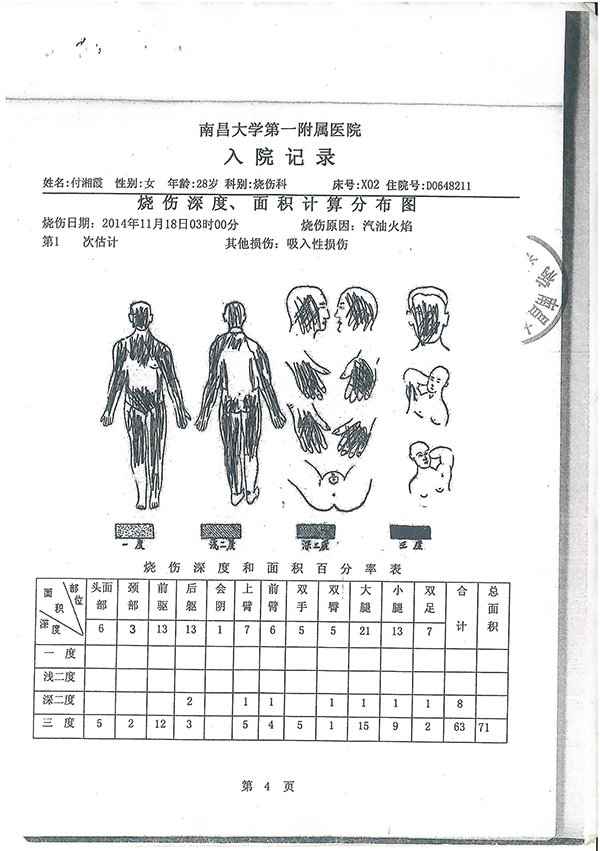 南昌大学第一附属医院
入院记录
姓名:付湘霞 性别:女 年龄:28岁 科别:烧伤科 床号:X02 住院号:D0648211
烧伤深度、面积计算分布图
烧伤日期: 2014年11月18日03时00分 烧伤原因: 汽油火焰
第1 次估计 其他损伤: 吸入性损伤
一度 浅二度 深二度 三度
烧伤深度和面积百分率表
面积 部位 深度 头面部 颈部 前躯 后躯 会阴 上臂 前臂 双手 双臀 大腿 小腿 双足 合计 总面积
6 3 13 13 1 7 6 5 5 21 13 7
一度
浅二度
深二度 2 1 1 1 1 1 1 8
三度 5 2 12 3 5 4 5 1 15 9 2 63 71
第 4 页